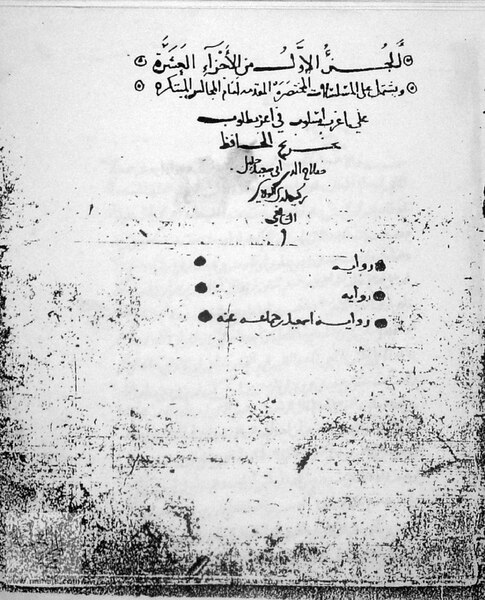 الجزء الأول من الأجزاء العشرة
ويشتمل على المسلسلات المختصرة المقدمة أمام المجالس المبتكرة
على أغرب أسلوب في أعز مطلوب
تخريج الحافظ
صلاح الدين أبي سعيد خليل
بن كيكلدي العلائي
الشافعي
رواية
رواية
رواية اسمعيل بن جماعة عنه